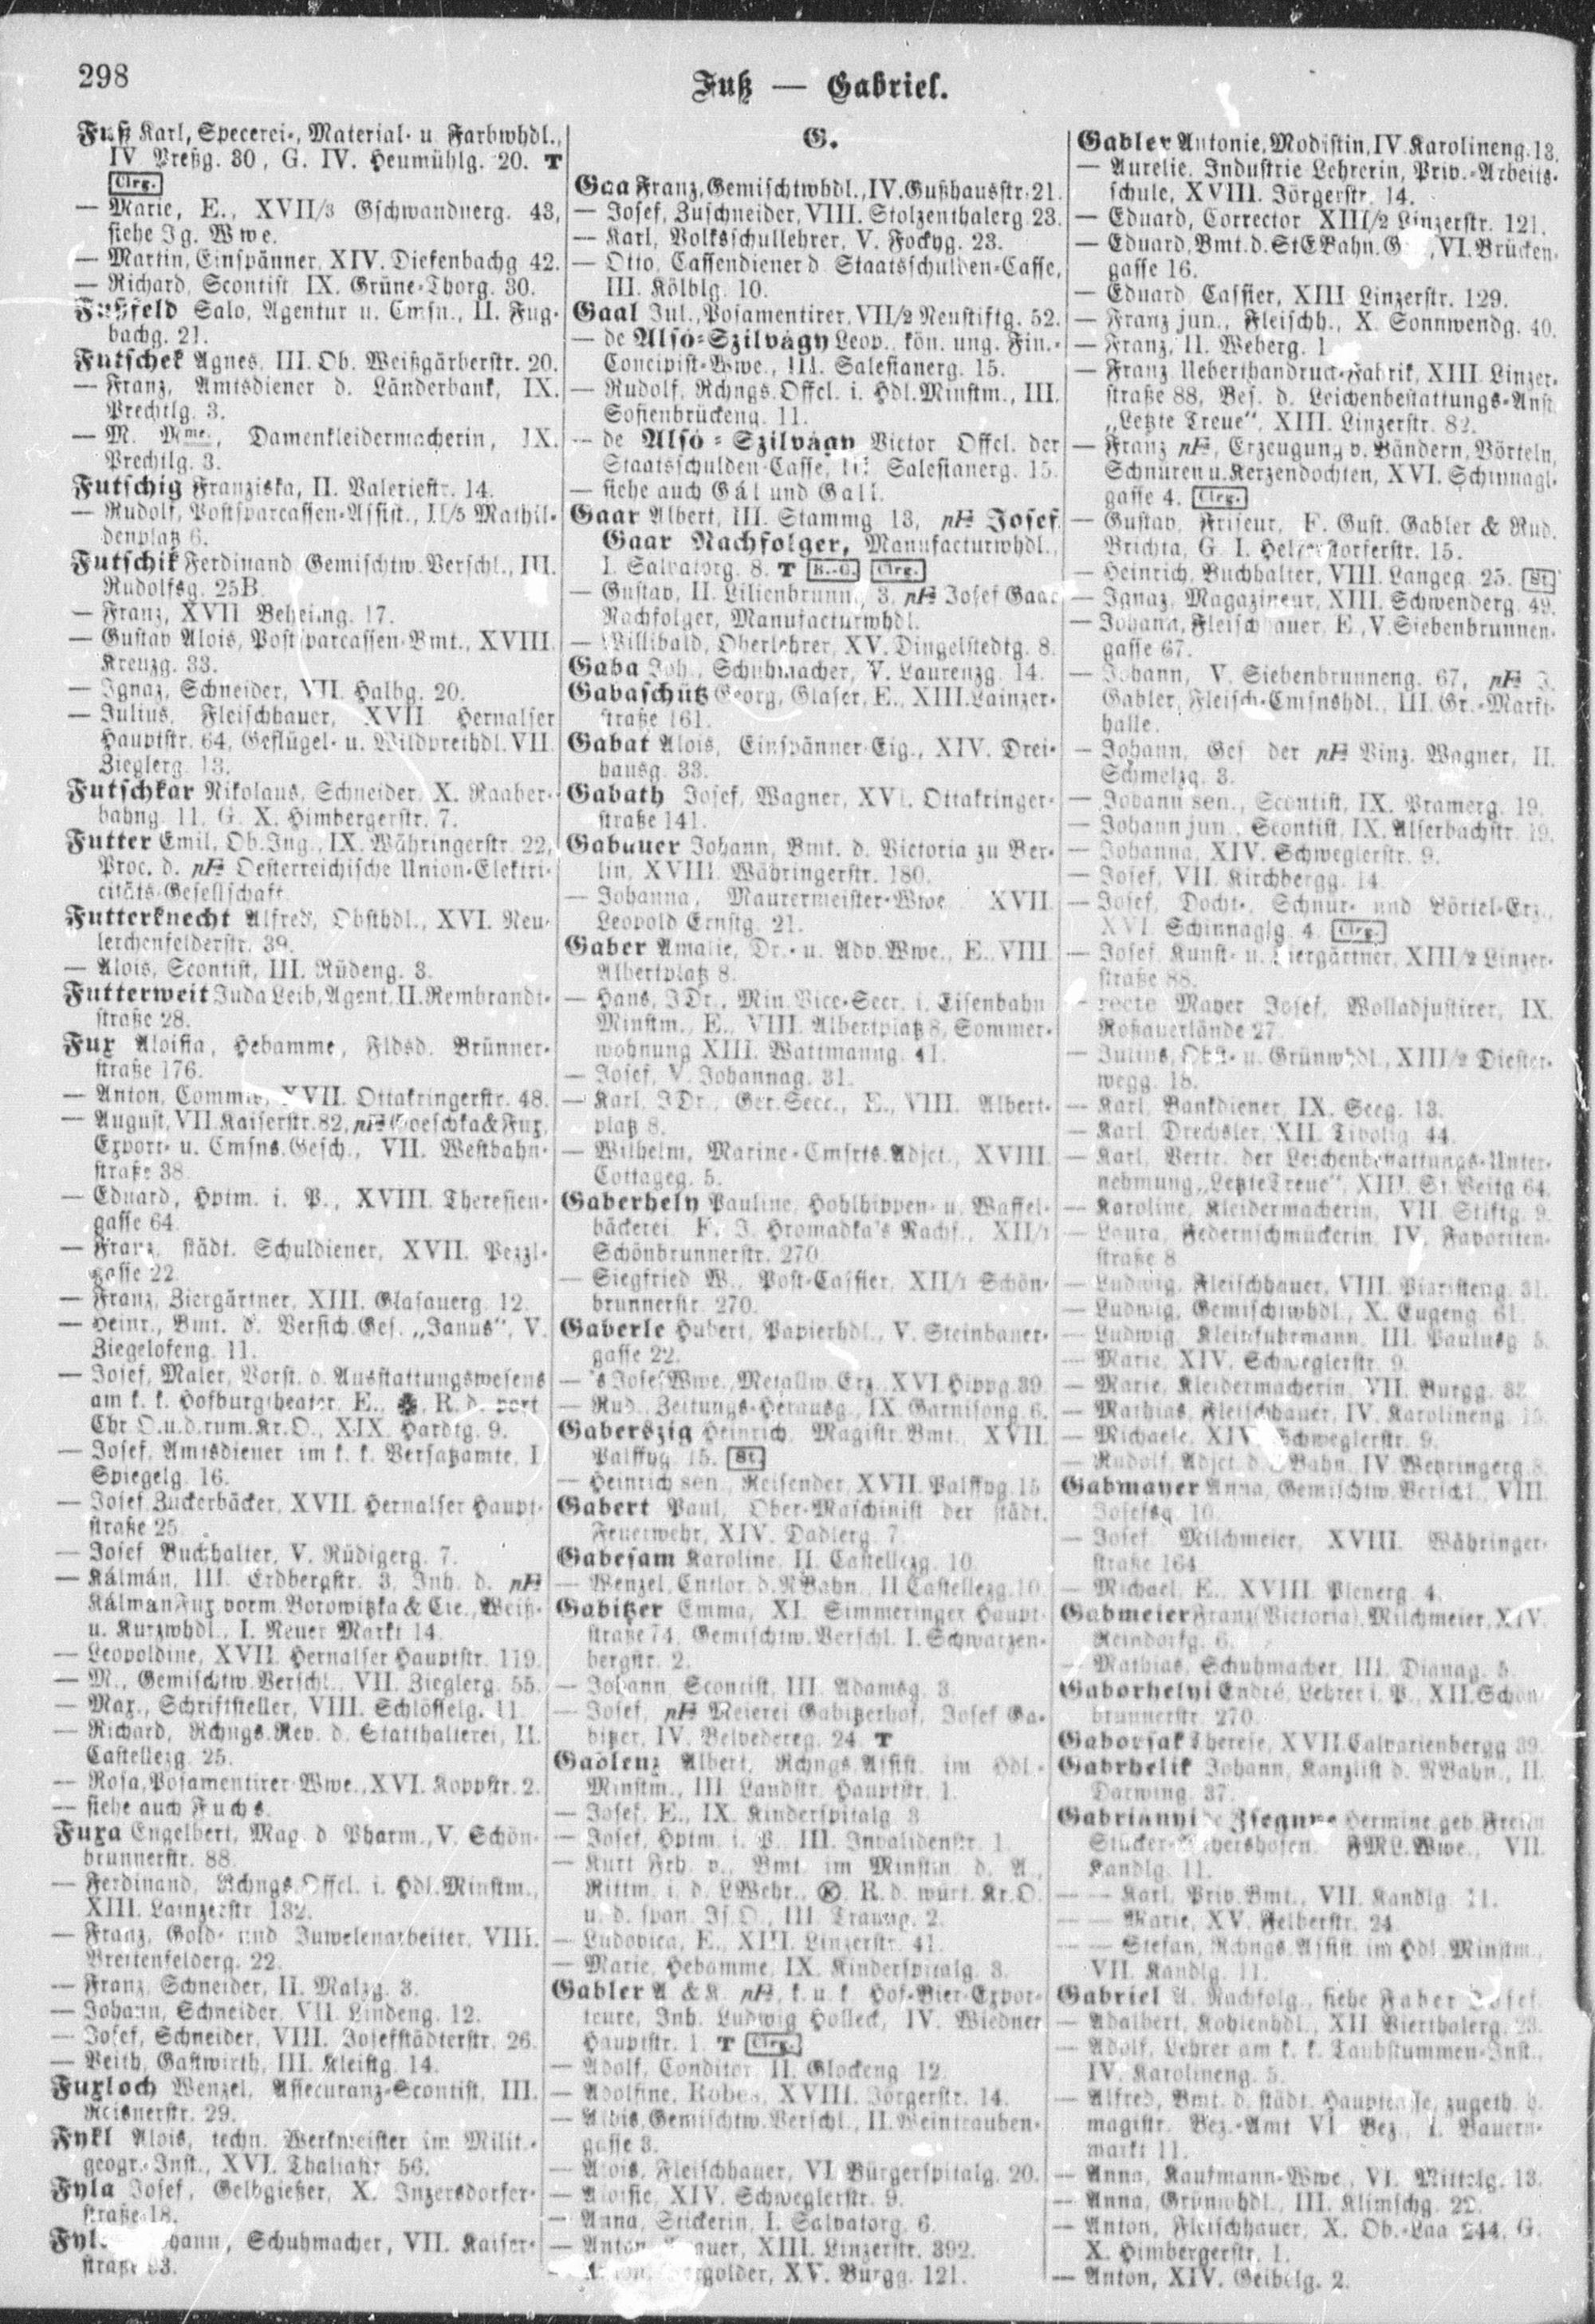 298
Fuß — Gabriel.
Fuß Karl, Specerei-, Material- u. Farbwhdl.,
IV. Preßg. 30, G. IV. Heumühlg. 20. T
Clrg.
— Marie, E., XVII/3 Gschwandnerg. 43,
siehe Ig. Wwe.
— Martin, Einspänner, XIV. Diefenbachg 42.
— Richard, Scontist IX. Grüne-Thorg. 30.
Fußfeld Salo, Agentur u. Cmsn., II. Fug-
bachg. 21.
Futschek Agnes, III. Ob. Weißgärberstr. 20.
— Franz, Amtsdiener d. Länderbank, IX.
Prechtlg. 3.
— M. Mme., Damenkleidermacherin, IX.
Prechtlg. 3.
Futschig Franziska, II. Valeriestr. 14.
— Rudolf, Postsparcassen-Assist., II/5 Mathil-
denplatz 6.
Futschik Ferdinand Gemischtw. Verschl., III.
Rudolfsg. 25B.
— Franz, XVII Beheimg. 17.
— Gustav Alois, Postsparcassen-Bmt., XVIII.
Kreuzg. 33.
— Ignaz, Schneider, VII. Halbg. 20.
— Julius, Fleischhauer, XVII. Hernalser
Hauptstr. 64, Geflügel- u. Wildprethdl. VII.
Zieglerg. 13.
Futschkar Nikolaus, Schneider, X. Raaber-
bahng. 11, G. X. Himbergerstr. 7.
Futter Emil, Ob.Ing., IX. Währingerstr. 22,
Proc. d. pF Oesterreichische Union-Elektri-
citäts-Gesellschaft.
Futterknecht Alfred, Obsthdl., XVI. Neu-
lerchenfelderstr. 39.
— Alois, Scontist, III. Rüdeng. 3.
Futterweit Juda Leib, Agent, II. Rembrandt-
straße 28.
Fux Aloisia, Hebamme, Fldsd. Brünner-
straße 176.
— Anton, XVII. Ottakringerstr. 48.
— August, VII. Kaiserstr. 82, pF Goeschka & Fux,
Export- u. Cmsns.Gesch., VII. Westbahn-
straße 38.
— Eduard, Hptm. i. P., XVIII. Theresien-
gasse 64.
— Franz, städt. Schuldiener, XVII. Pezzl-
gasse 22.
— Franz, Ziergärtner, XIII. Glasauerg. 12.
— Heinr., Bmt. d. Versich.Ges. „Janus“, V.
Ziegelofeng. 11.
— Josef, Maler, Vorst. d. Ausstattungswesens
am k. k. Hofburgtheater, E., R. d. port.
Chr.O.u.d.rum.Kr.O., XIX. Hardtg. 9.
— Josef, Amtsdiener im k. k. Versatzamte, I.
Spiegelg. 16.
— Josef Zuckerbäcker, XVII. Hernalser Haupt-
straße 25.
— Josef Buchhalter, V. Rüdigerg. 7.
— Kálmán, III. Erdbergstr. 3, Inh. d. pF
Kálmán Fux vorm. Borowitzka & Cie., Weiß-
u. Kurzwhdl., I. Neuer Markt 14.
— Leopoldine, XVII. Hernalser Hauptstr. 119.
— M., Gemischtw.Verschl., VII. Zieglerg. 55.
— Max., Schriftsteller, VIII. Schlösselg. 11.
— Richard, Rchngs.Rev. d. Statthalterei, II.
Castellezg. 25.
— Rosa, Posamentirer-Wwe., XVI. Koppstr. 2.
— siehe auch Fuchs.
Fuxa Engelbert, Mag. d Pharm., V. Schön-
brunnerstr. 88.
— Ferdinand, Rchngs.Offcl. i. Hdl.Minstm.,
XIII. Lainzerstr. 132.
— Franz, Gold- und Juwelenarbeiter, VIII.
Breitenfelderg. 22.
— Franz, Schneider, II. Malzg. 3.
— Johann, Schneider, VII. Lindeng. 12.
— Josef, Schneider, VIII. Josefstädterstr. 26.
— Veith, Gastwirth, III. Kleistg. 14.
Fuxloch Wenzel, Assecuranz-Scontist, III.
Reisnerstr. 29.
Fykl Alois, techn. Werkmeister im Milit.-
geogr.-Inst., XVI. Thaliastr 56.
Fyla Josef, Gelbgießer, X. Inzersdorfer-
straße 18.
Schuhmacher, VII. Kaiser-
straße 93.
G.
Gaa Franz, Gemischtwhdl., IV. Gußhausstr. 21.
— Josef, Zuschneider, VIII. Stolzenthalerg. 23.
— Karl, Volksschullehrer, V. Fockyg. 23.
— Otto, Cassendiener d. Staatsschulden-Casse,
III. Kölblg. 10.
Gaal Jul., Posamentirer, VII/2 Neustiftg. 52.
— de Alsó-Szilvágy Leop., kön. ung. Fin.-
Concipist-Wwe., III. Salesianerg. 15.
— Rudolf, Rchngs.Offcl. i. Hdl.Minstm., III.
Sofienbrückeng. 11.
— de Alsó-Szilvágy Victor Offcl. der
Staatsschulden-Casse, III. Salesianerg. 15.
— siehe auch Gál und Gall.
Gaar Albert, III. Stammg. 13, pF Josef
Gaar Nachfolger, Manufacturwhdl.,
I. Salvatorg. 8. T K.-G. Clrg.
— Gustav, II. Lilienbrunng. 3, pF Josef Gaar
Nachfolger, Manufacturwhdl.
— Willibald, Oberlehrer, XV. Dingelstedtg. 8.
Gaba Joh., Schuhmacher, V. Laurenzg. 14.
Gabaschütz Georg, Glaser, E., XIII. Lainzer-
straße 161.
Gabat Alois, Einspänner-Eig., XIV. Drei-
hausg. 33.
Gabath Josef, Wagner, XVI. Ottakringer-
straße 141.
Gabauer Johann, Bmt. d. Victoria zu Ber-
lin, XVIII. Währingerstr. 180.
— Johanna, Maurermeister-Wwe., XVII.
Leopold Ernstg. 21.
Gaber Amalie, Dr.- u. Adv.Wwe., E., VIII.
Albertplatz 8.
— Hans, JDr., Min.Vice-Secr. i. Eisenbahn
Minstm., E., VIII. Albertplatz 8, Sommer-
wohnung XIII. Wattmanng. 41.
— Josef, V. Johannag. 31.
— Karl, JDr., Ger.Secr., E., VIII. Albert-
platz 8.
— Wilhelm, Marine-Cmsrts.Adjct., XVIII.
Cottageg. 5.
Gaberhely Pauline, Hohlhippen- u. Waffel-
bäckerei, F. J. Hromadka's Nachf., XII/1
Schönbrunnerstr. 270.
— Siegfried W., Post-Cassier, XII/1 Schön-
brunnerstr. 270.
Gaberle Hubert, Papierhdl., V. Steinbauer-
gasse 22.
— 's Josef Wwe., Metallw.Erz., XVI. Hippg. 39.
— Rud., Zeitungs-Herausg., IX. Garnisong. 6.
Gaberszig Heinrich, Magistr.Bmt., XVII.
Palffyg. 15. St.
— Heinrich sen., Reisender, XVII. Palffyg. 15
Gabert Paul, Ober-Maschinist der städt.
Feuerwehr, XIV. Dadlerg. 7.
Gabesam Karoline, II. Castellezg. 10.
— Wenzel, Cntlor. d.NBahn., II. Castellezg. 10.
Gabitzer Emma, XI. Simmeringer Haupt-
straße 74, Gemischtw.Verschl. I. Schwarzen-
bergstr. 2.
— Johann, Scontist, III. Adamsg. 3.
— Josef, pF Meierei Gabitzerhof, Josef Ga-
bitzer, IV. Belvedereg. 24. T
Gablenz Albert, Rchngs.Assist. im Hdl.-
Minstm., III. Landstr. Hauptstr. 1.
— Josef, E., IX. Kinderspitalg. 3.
— Josef, Hptm. i. P., III. Invalidenstr. 1.
— Kurt Frh. v., Bmt. im Minstm. d. A.,
Rittm. i. d. LWehr., K, R. d. würt. Kr.O.
u. d. span. Is.O., III. Traung. 2.
— Ludovica, E., XIII. Linzerstr. 41.
— Marie, Hebamme, IX. Kinderspitalg. 3.
Gabler A. & K. pF, k. u. k. Hof-Bier-Expor-
teure, Inh. Ludwig Holleck, IV. Wiedner
Hauptstr. 1. T Clrg.
— Adolf, Conditor, II. Glockeng. 12.
— Adolfine, Robes, XVIII. Jörgerstr. 14.
— Alois, Gemischtw.Verschl., II. Weintrauben-
gasse 3.
— Alois, Fleischhauer, VI. Bürgerspitalg. 20.
— Aloisie, XIV. Schweglerstr. 9.
— Anna, Stickerin, I. Salvatorg. 6.
— Anton, XIII. Linzerstr. 392.
XV. Burgg. 121.
Gabler Antonie, Modistin, IV. Karolineng. 13.
— Aurelie, Industrie Lehrerin, Priv.-Arbeits-
schule, XVIII. Jörgerstr. 14.
— Eduard, Corrector XIII/2 Linzerstr. 121.
— Eduard, Bmt. d. StEBahn. VI. Brücken-
gasse 16.
— Eduard Cassier, XIII. Linzerstr. 129.
— Franz jun., Fleischh., X. Sonnwendg. 40.
— Franz, II. Weberg. 1
— Franz Ueberthandruck-Fabrik, XIII Linzer-
straße 88, Bes. d. Leichenbestattungs-Anst.
„Letzte Treue“, XIII. Linzerstr. 82.
— Franz pF, Erzeugung v. Bändern, Börteln,
Schnüren u. Kerzendochten, XVI. Schinnagl-
gasse 4. Clrg.
— Gustav, Friseur, F. Gust. Gabler & Rud.
Brichta, G. I. Helferstorferstr. 15.
— Heinrich, Buchhalter, VIII. Langeg. 25. St
— Ignaz, Magazineur, XIII. Schwenderg. 49.
— Johann, Fleischhauer, E., V. Siebenbrunnen-
gasse 67.
— Johann, V. Siebenbrunneng. 67, pF J.
Gabler, Fleisch-Cmsnshdl., III. Gr.-Markt-
halle.
— Johann, Ges. der pF Vinz. Wagner, II.
Schmelzg. 3.
— Johann sen., Scontist, IX. Pramerg. 19.
— Johann jun., Scontist, IX. Alserbachstr. 19.
— Johanna, XIV. Schweglerstr. 9.
— Josef, VII. Kirchbergg. 14.
— Josef, Docht-, Schnür- und Börtel-Erz.,
XVI. Schinnaglg. 4. Clrg.
— Josef, Kunst- u. Ziergärtner, XIII/2 Linzer-
straße 88.
— recte Mayer Josef, Wolladjustirer, IX.
Roßauerlände 27.
— Julius, Obst- u. Grünwhdl., XIII/2 Diester-
wegg. 18.
— Karl, Bankdiener, IX. Seeg. 13.
— Karl, Drechsler, XII. Tivolig. 44.
— Karl, Vertr. der Leichenbestattungs-Unter-
nehmung „Letzte Treue“, XIII. St. Veitg 64.
— Karoline, Kleidermacherin, VII. Stiftg. 9.
— Laura, Federnschmückerin, IV. Favoriten-
straße 8
— Ludwig, Fleischhauer, VIII. Piaristeng. 31.
— Ludwig, Gemischtwhdl., X. Eugeng. 61.
— Ludwig, Kleinfuhrmann, III. Paulusg. 5.
— Marie, XIV. Schweglerstr. 9.
— Marie, Kleidermacherin, VII. Burgg.
— Mathias, Fleischhauer, IV. Karolineng.
— Michaele, XIV. Schweglerstr. 9.
— Rudolf, Adjct. d. Bahn, IV Weyringerg.
Gabmayer Anna, Gemischtw.Verschl., VIII.
Josefsg. 10.
— Josef, Milchmeier, XVIII. Währinger-
straße 164.
— Michael, E., XVIII. Plenerg. 4.
Gabmeier Franz (Victoria), Milchmeier, XIV.
Reindorfg. 6.
— Mathias, Schuhmacher, III. Dianag. 5.
Gaborhelyi Endre, Lehrer i. P., XII. Schön-
brunnerstr. 270.
Gaborsak Therese, XVII. Calvarienbergg 39.
Gabrhelik Johann, Kanzlist d. NBahn., II.
Darwing. 37.
Gabrianyi de Hermine geb. Freiin
FML.Wwe., VII.
Kandlg. 11.
— — Karl, Priv.Bmt., VII. Kandlg. 11.
— — Marie, XV. Felberstr. 24.
— — Stefan, Rchngs.Assist. im Hdl.Minstm.,
VII. Kandlg. 11.
Gabriel A. Nachfolg., siehe Faber Josef.
— Adalbert, Kohlenhdl., XII. Vierthalerg. 23.
— Adolf, Lehrer am k. k. Taubstummen-Inst.,
IV. Karolineng. 5.
— Alfred, Bmt. d. städt. Hauptcasse, zugeth. b.
magistr. Bez.-Amt VI. Bez., I. Bauern-
markt 11.
— Anna, Kaufmann-Wwe., VI. Mittelg. 13.
— Anna, Grünwhdl., III. Klimschg. 22.
— Anton, Fleischhauer, X. Ob.-Laa 244, G.
X. Himbergerstr. 1.
— Anton, XIV. Geibelg. 2.